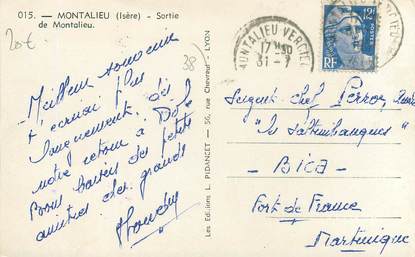 015. — MONTALIEU (Isère) - Sortie
de Montalieu.
20€
38)
Meilleur souvenir
t'écrirai plus
longuement, dès
notre retour à Dole
Bons baisers des petits
amitiés des grands
Les Editions L. PIDANCET — 56, rue Chevreul - LYON
MONTALIEU-VERCIEU
17H30
31-7
12F
RF
Sergent-chef Perroy
"Les Saltimbanques"
- BICA -
Fort de France
Martinique